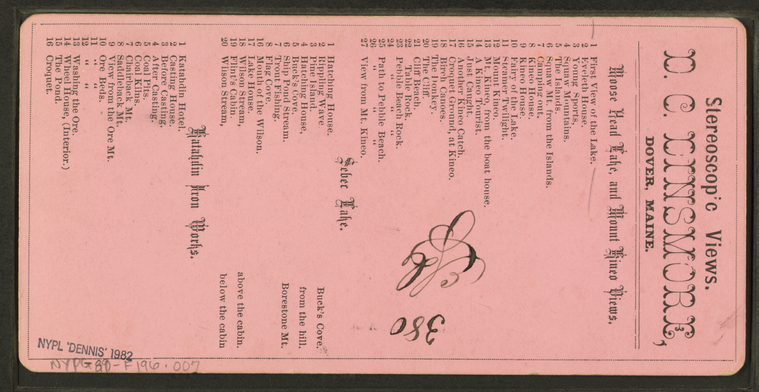 Stereoscopic Views.
D. C. DINSMORE,
DOVER, MAINE.
Moose Head Lake, and Mount Kineo Views.
1 First View of the Lake.
2 Eveleth House.
3 Young Sports,
4 Squaw Mountains.
5 The Islands.
6 Squaw Mt. from the Islands.
7 Camping out,
8 Kineo House.
9 Kineo House,
10 Fairy of the Lake.
11 Summer Twilight.
12 Mount Kineo.
13 Mt. Kineo, from the boat house.
14 A Kineo Tourist.
15 Just Caught.
16 Another Kineo Catch.
17 Croquet Ground, at Kineo.
18 Birch Canoes.
19 The Donkey.
20 The Cliff.
21 Cliff Beach.
22 Table Rock.
23 Pebble Beach Rock.
24 " " "
25 Path to Pebble Beach.
26 " " "
27 View from Mt. Kineo.
Seber Lake.
1 Hatching House.
2 Rippling Wave
3 Pine Island.
4 Hatching House,
5 Buck's Cove.
6 Ship Pond Stream.
7 Trout Fishing.
8 Flag Cove.
16 Mouth of the Wilson.
17 Lake House.
18 Wilson Stream,
19 Flint's Cabin.
20 Wilson Stream,
Buck's Cove.
from the hill.
Borestone Mt.
above the cabin.
below the cabin
Katahdin Iron Works.
1 Katahdin Hotel,
2 Casting House.
3 Before Casting.
4 After Casting.
5 Coal Pits.
6 Coal Kilns.
7 Churback Mt.
8 Saddleback Mt.
9 View from the Ore Mt.
10 Ore Beds.
11 " "
12 " "
13 Washing the Ore.
14 Wheel House, (Interior.)
15 The Pond.
16 Croquet.
380
NYPL 'DENNIS' 1982